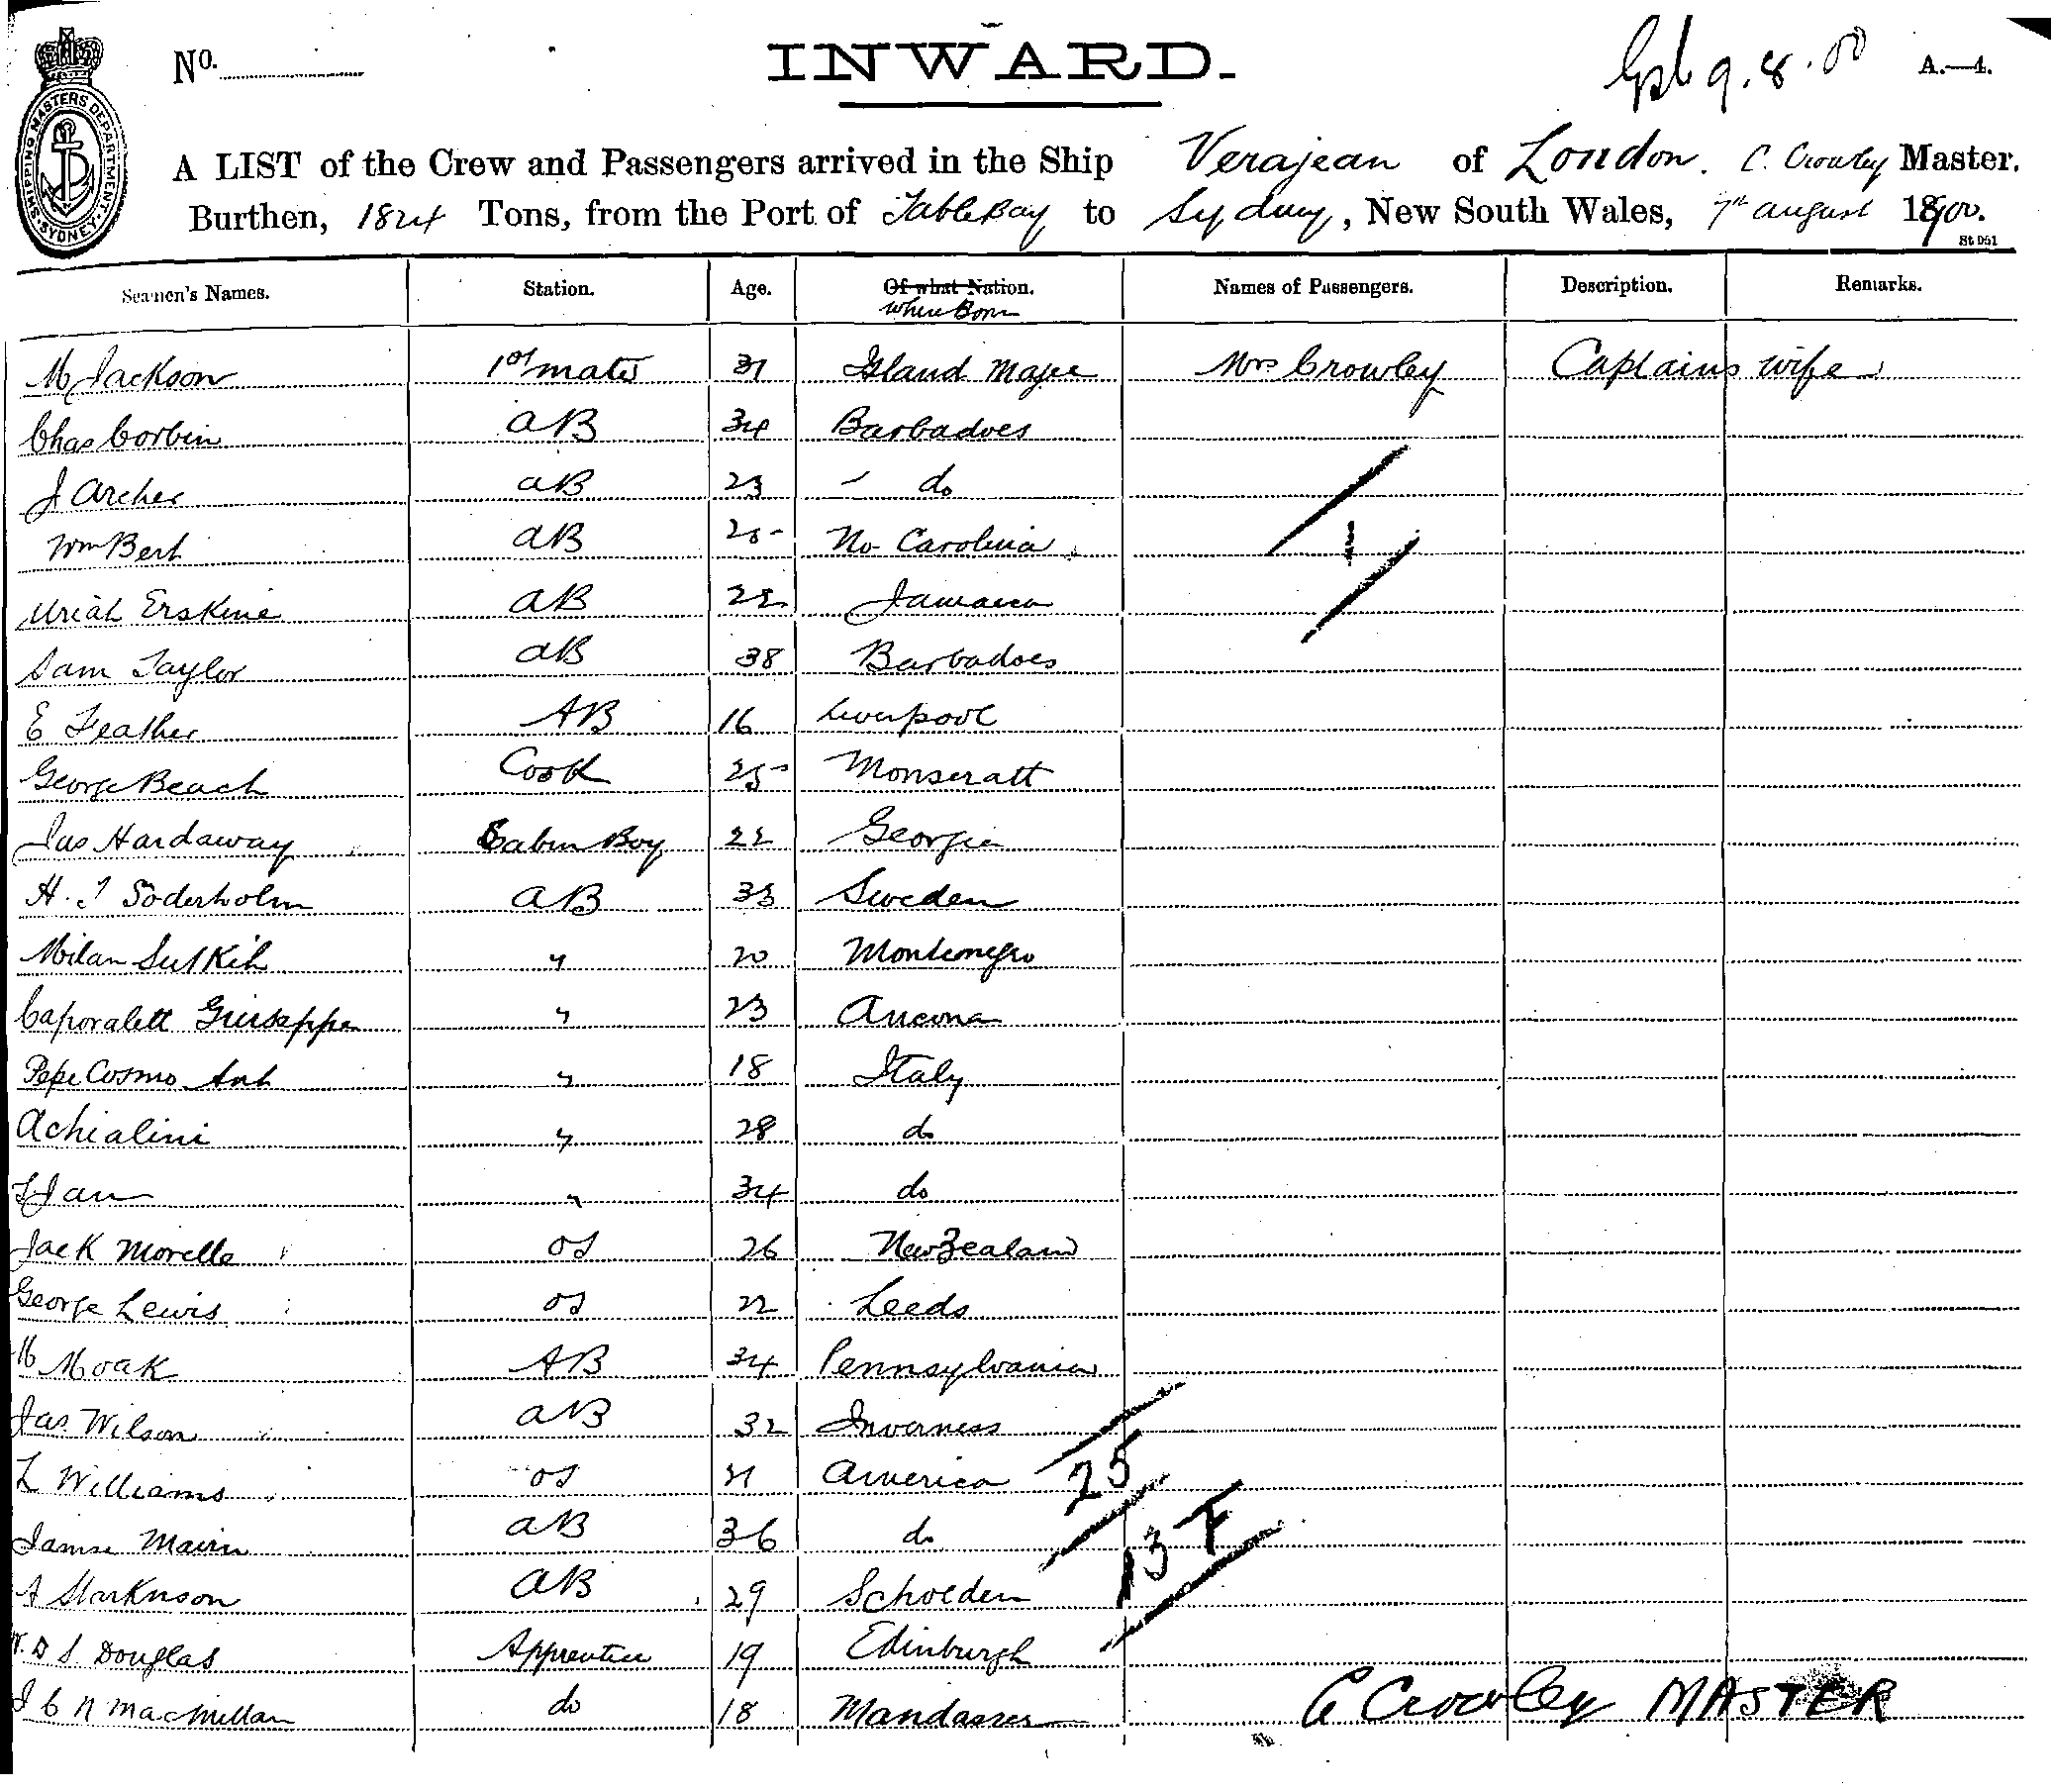 No.
INWARD.
9.8.00
A.—4.
SHIPPING MASTERS DEPARTMENT. SYDNEY.
A LIST of the Crew and Passengers arrived in the Ship Verajean of London. C. Crowley Master.
Burthen, 1824 Tons, from the Port of Table Bay to Sydney, New South Wales, 7th august 1900.
St D51
Seamen's Names. Station. Age. Of what Nation. Names of Passengers. Description. Remarks.
Where Born
M Jackson 1st mate 31 Island Magee Mrs Crowley Captains wife
Chas Corbin aB 34 Barbadoes
J Archer aB 23 do
Wm Bert aB 25 No Carolina 1
Uriah Erskine aB 22 Jamaica
Sam Taylor aB 38 Barbadoes
E Feather AB 16 Liverpool
George Beach Cook 25 Monseratt
Jas Hardaway Cabin Boy 22 Georgia
H. J Soderholm aB 33 Sweden
Milan " 20 Montenegro
Caporalett Giuseppe " 23 Ancona
Pepe Cosmo Ant " 18 Italy
Achialini " 28 do
" 34 do
Jack Morella OS 26 New Zealand
George Lewis OS 22 Leeds
M Moak AB 34 Pennsylvania
Jas. Wilson aB 32 Inverness
L Williams OS 21 America 25
aB 36 do 13 F
aB 29 Scholden
D S Douglas Apprentice 19 Edinburgh
J C N MacMillan do 18
C Crowley MASTER